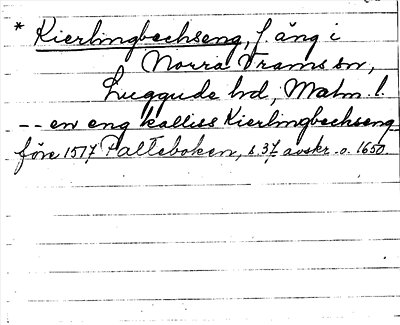 * Kierlingbechseng, f. äng i
Norra Vrams sn,
Luggude hd, Malm. l.
-- en eng kalliss Kierlingbechseng
före 1517 Palteboken, s. 37 avskr. o. 1650.